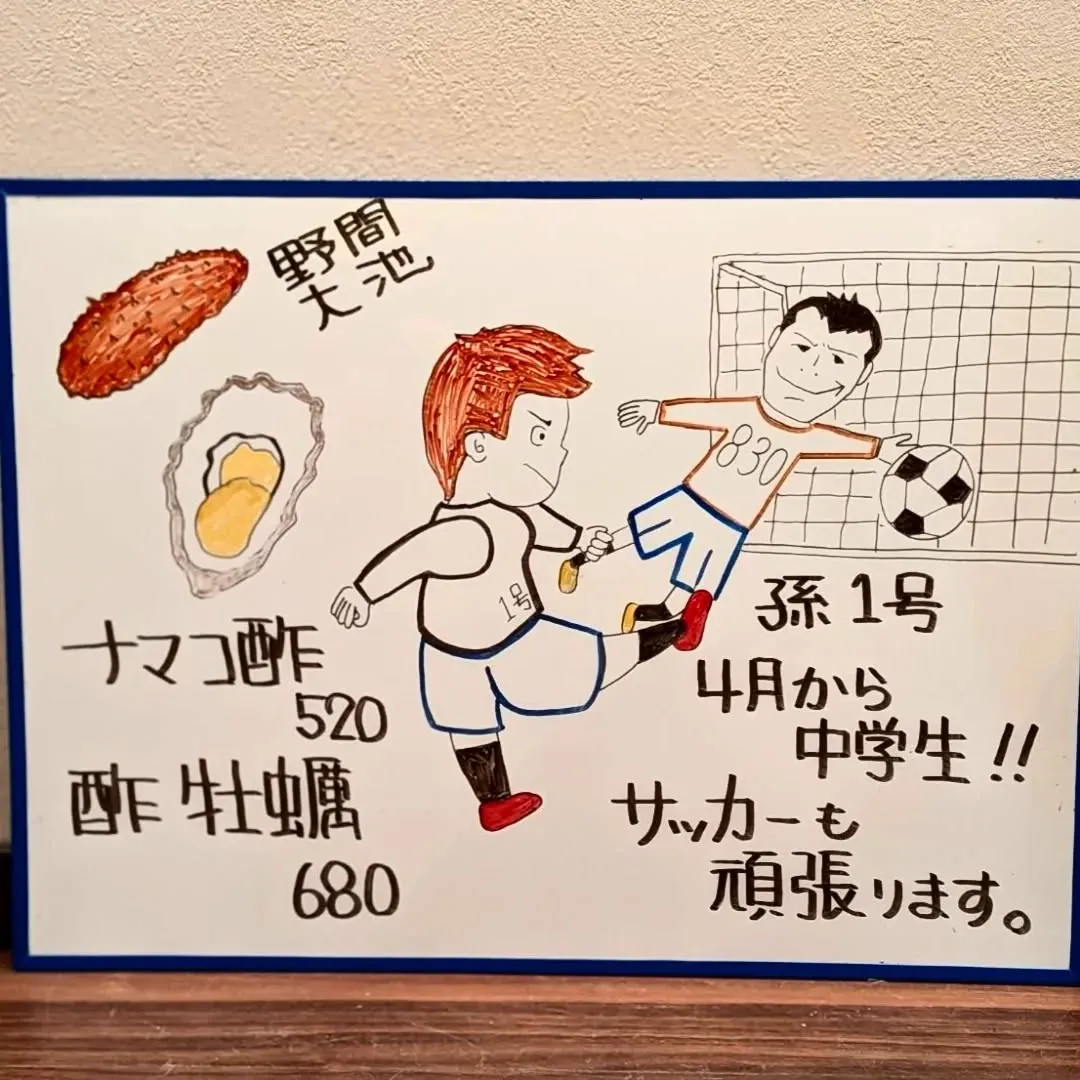 野間
大池
830
1号
ナマコ酢
520
酢牡蠣
680
孫1号
4月から
中学生!!
サッカーも
頑張ります。